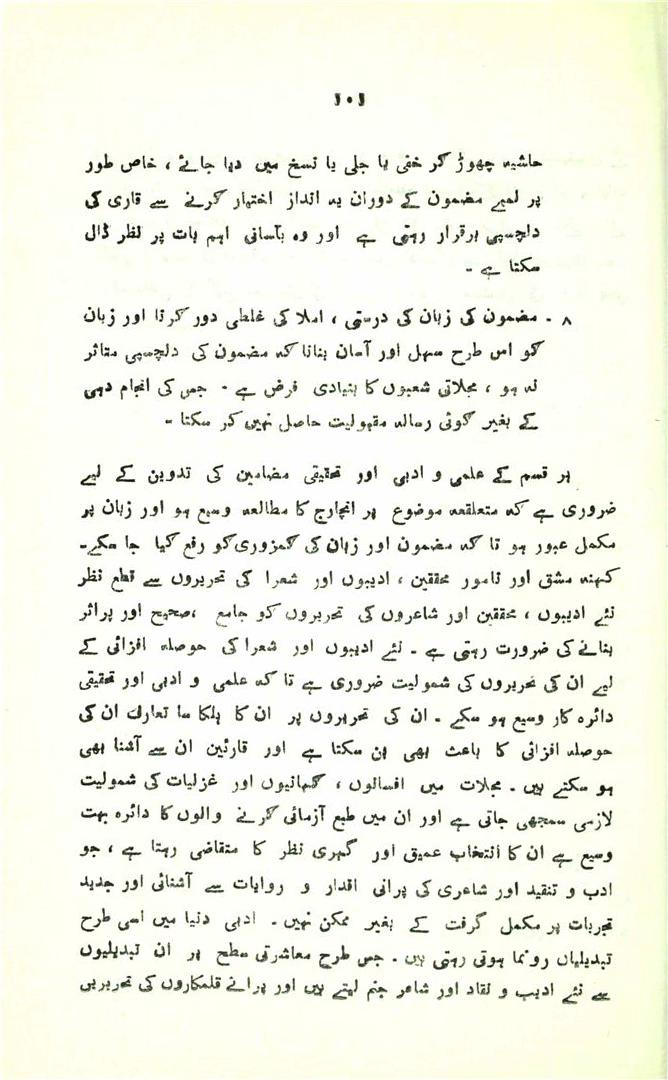 ۱۰۱
حاشیہ چھوڑ کر خفی یا جلی یا نسخ میں دیا جائے ، خاص طور
پر لمبے مضمون کے دوران یہ انداز اختیار کرنے سے قاری کی
دلچسپی برقرار رہتی ہے اور وہ بآسانی اہم بات پر نظر ڈال
سکتا ہے ۔
۸ ۔ مضمون کی زبان کی درستی ، املا کی غلطی دور کرنا اور زبان
کو اس طرح سہل اور آسان بنانا کہ مضمون کی دلچسپی متاثر
نہ ہو ، مجلاتی شعبوں کا بنیادی فرض ہے ۔ جس کی انجام دہی
کے بغیر کوئی رسالہ مقبولیت حاصل نہیں کر سکتا ۔
ہر قسم کے علمی و ادبی اور تحقیقی مضامین کی تدوین کے لیے
ضروری ہے کہ متعلقہ موضوع پر انچارج کا مطالعہ وسیع ہو اور زبان پر
مکمل عبور ہو تا کہ مضمون اور زبان کی کمزوری کو رفع کیا جا سکے۔
کہنہ مشق اور نامور محققین ، ادیبوں اور شعرا کی تحریروں سے قطع نظر
نئے ادیبوں ، محققین اور شاعروں کی تحریروں کو جامع ، صحیح اور پراثر
بنانے کی ضرورت رہتی ہے ۔ نئے ادیبوں اور شعرا کی حوصلہ افزائی کے
لیے ان کی تحریروں کی شمولیت ضروری ہے تا کہ علمی و ادبی اور تحقیقی
دائرہ کار وسیع ہو سکے ۔ ان کی تحریروں پر ان کا ہلکا سا تعارف ان کی
حوصلہ افزائی کا باعث بھی بن سکتا ہے اور قارئین ان سے آشنا بھی
ہو سکتے ہیں ۔ مجلات میں افسانوں ، کہانیوں اور غزلیات کی شمولیت
لازمی سمجھی جاتی ہے اور ان میں طبع آزمائی کرنے والوں کا دائرہ بہت
وسیع ہے ان کا انتخاب عمیق اور گہری نظر کا متقاضی رہتا ہے ، جو
ادب و تنقید اور شاعری کی پرانی اقدار و روایات سے آشنائی اور جدید
تجربات پر مکمل گرفت کے بغیر ممکن نہیں ۔ ادبی دنیا میں اسی طرح
تبدیلیاں رونما ہوتی رہتی ہیں ۔ جس طرح معاشرتی سطح پر ان تبدیلیوں
سے نئے ادیب و نقاد اور شاعر جنم لیتے ہیں اور پرانے قلمکاروں کی تحریریں